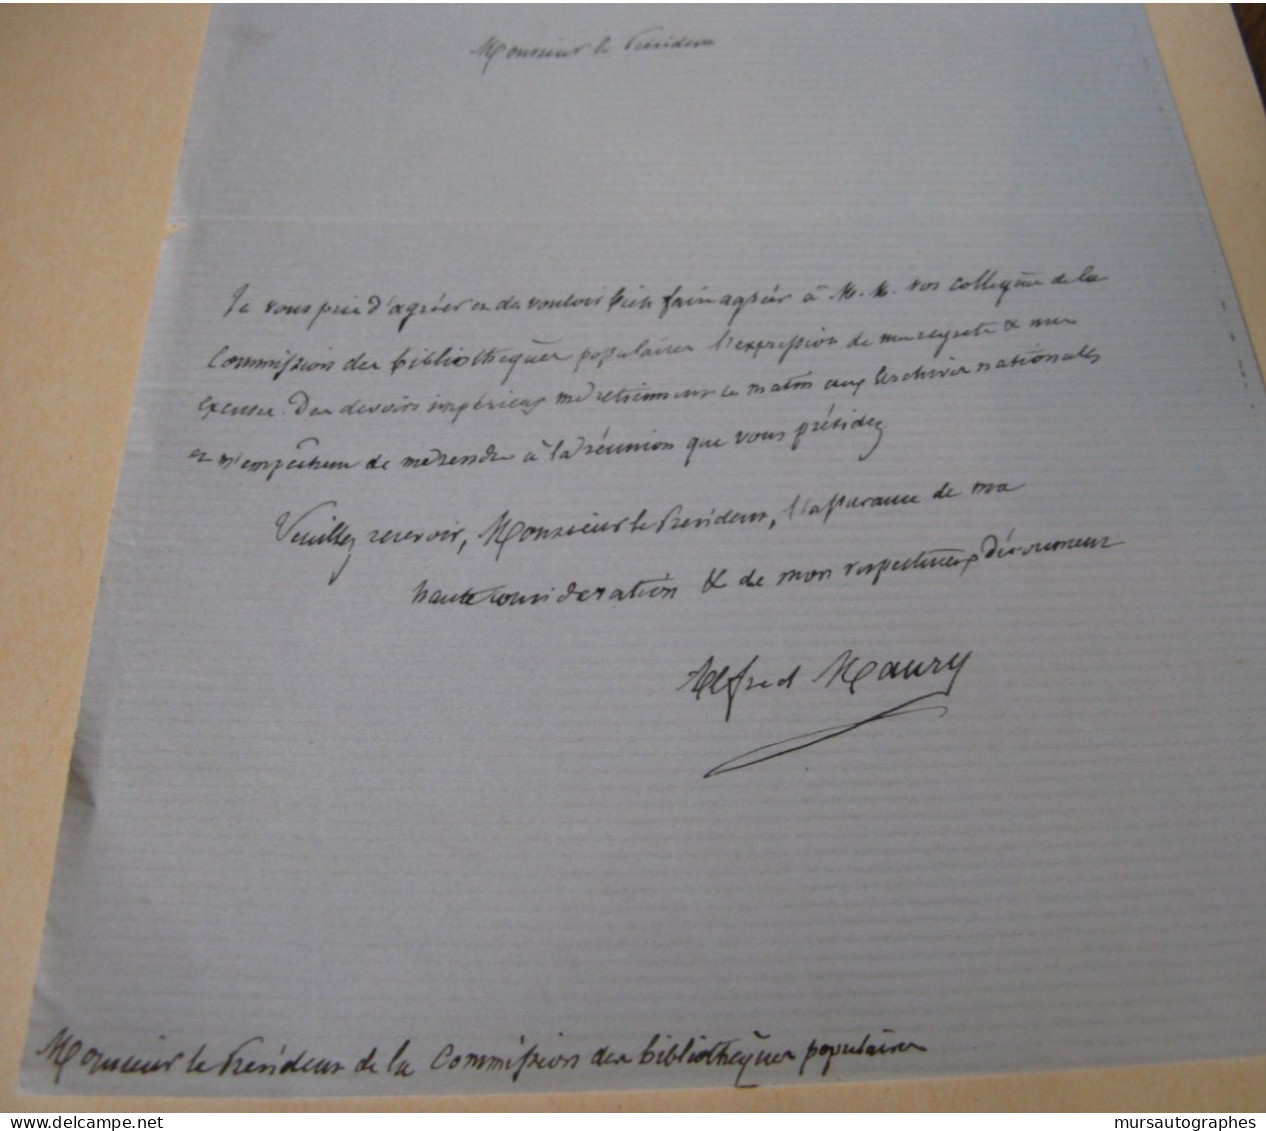 Monsieur le Président
Je vous prie d'agréer et de vouloir bien faire agréer à M. M. vos collègues de la
Commission des bibliothèques populaires l'expression de mes regrets & mes
excuses. Des devoirs impérieux me retiennent ce matin aux Archives nationales
et m'empêchent de me rendre à la réunion que vous présidez
Veuillez recevoir, Monsieur le Président, l'assurance de ma
haute considération & de mon respectueux dévouement
Alfred Maury
Monsieur le Président de la Commission des bibliothèques populaires
delcampe.net
mursautographes